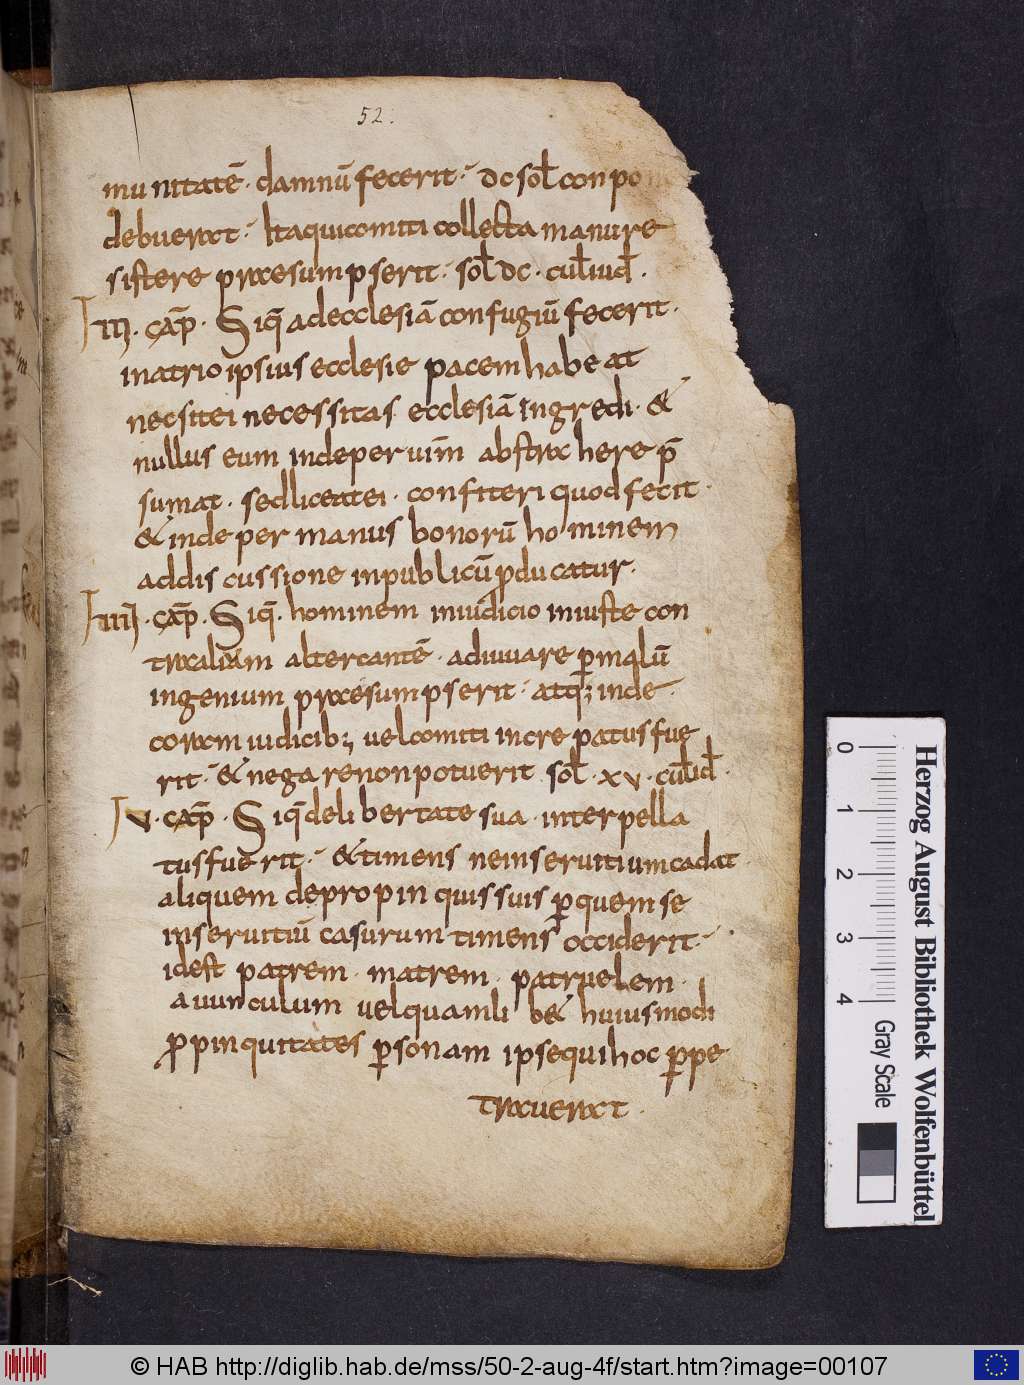 52.
munitatē · damnū fecerit · dc sol̄ conpon
debuerat · Ita qui comiti collecta manu re
sistere praesumpserit · sol̄ dc · cul̄ iud̄ ·
III · cap̄ · Siq̄ ad ecclesiā confugiū fecerit ·
in atrio ipsius ecclesie pacem habeat
nec sit ei necessitas ecclesiā ingredi · &
nullus eum inde per uim̄ abstrahere p̄
sumat · sed liceat ei · confiteri quod fecit ·
& inde per manus bonorū hominem
ad discussione in publicū ꝓducatur ·
IIII · cap̄ · Siq̄ · hominem in iudicio iniuste con
tra alium altercantē · adiuuare ꝑ malū
ingenium praesumpserit · atq; inde ·
coram iudicib; uel comiti increpatus fue
rit · & negare non potuerit sol̄ · xv · cul̄ iud̄ ·
V · cap̄ · Siq̄ de libertate sua · interpella
tus fuerit · & timens ne in seruitium cadat ·
aliquem de propinquis suis ꝑ quem se
in seruitiū casurum timens occiderit ·
idest patrem · matrem · patruelem ·
auunculum uel quamlib& huiusmodi
ꝓpinquitates ꝑsonam ipse qui hoc ꝑpe
trauerat ·
0 1 2 3 4
Gray Scale
Herzog August Bibliothek Wolfenbüttel
© HAB http://diglib.hab.de/mss/50-2-aug-4f/start.htm?image=00107